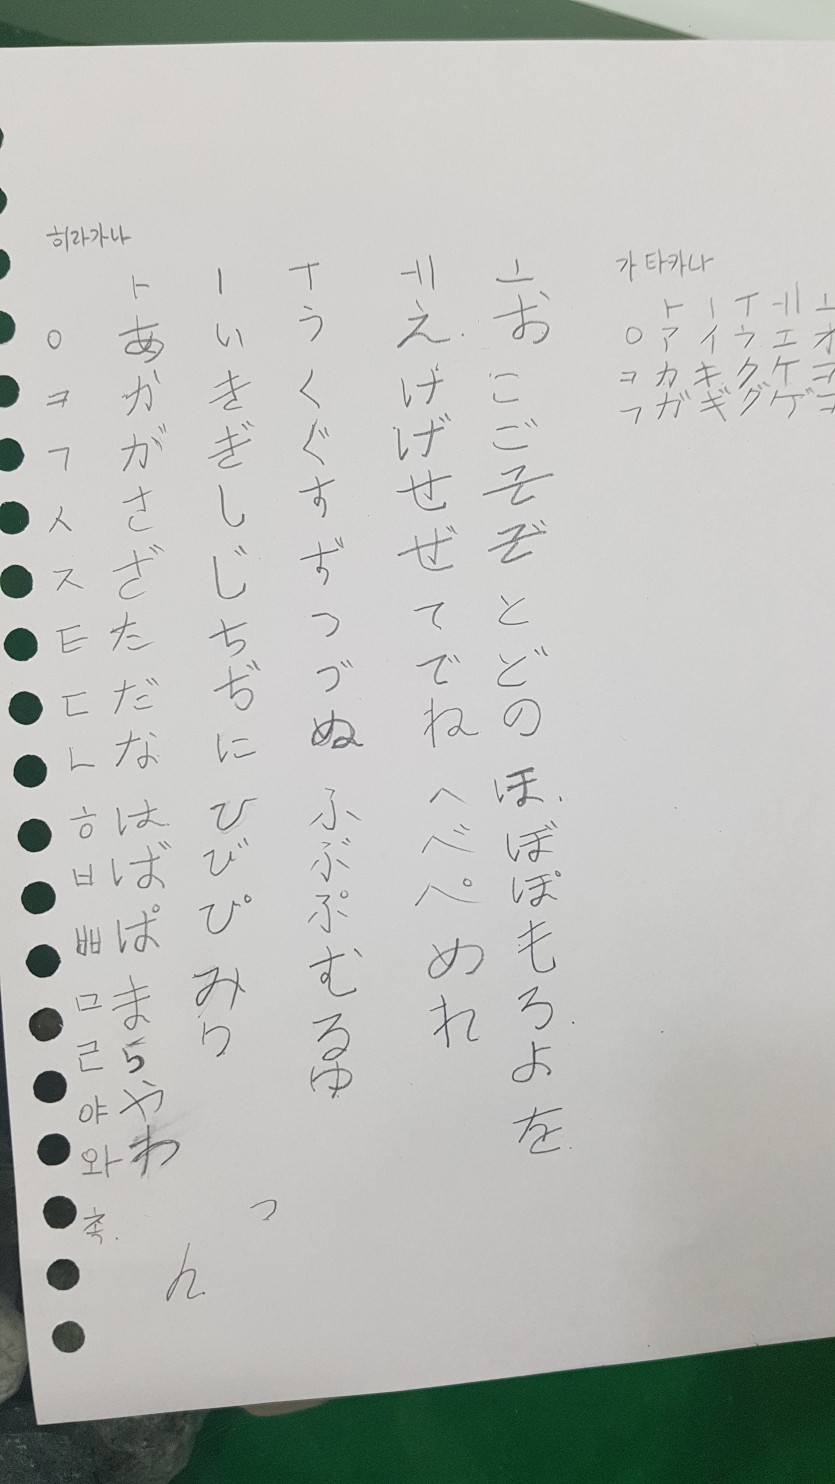 히라가나
ㅏ ㅣ ㅜ ㅔ ㅗ
ㅇ あ い う え お
ㅋ か き く げ こ
ㄱ が ぎ ぐ げ ご
ㅅ さ し す せ そ
ㅈ ざ じ ず ぜ ぞ
ㅌ た ち つ て と
ㄷ だ ぢ づ で ど
ㄴ な に ぬ ね の
ㅎ は ひ ふ へ ほ
ㅂ ば び ぶ べ ぼ
ㅃ ぱ ぴ ぷ ぺ ぽ
ㅁ ま み む め も
ㄹ ら り る れ ろ
야 や ゆ よ
와 わ を
촉 っ
ん
가타카나
ㅏ ㅣ ㅜ ㅔ ㅗ
ㅇ ア イ ウ エ オ
ㅋ カ キ ク ケ コ
ㄱ ガ ギ グ ゲ